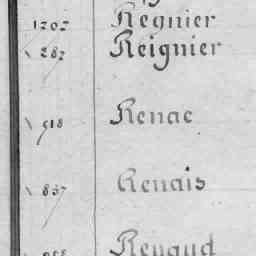 1202 Regnier
287 Reignier
918 Renac
837 Renais
Renaud